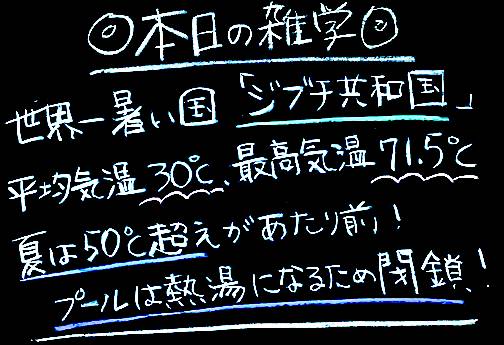 ◎本日の雑学◎
世界一暑い国「ジブチ共和国」
平均気温30℃、最高気温71.5℃
夏は50℃超えがあたり前！
プールは熱湯になるため閉鎖！